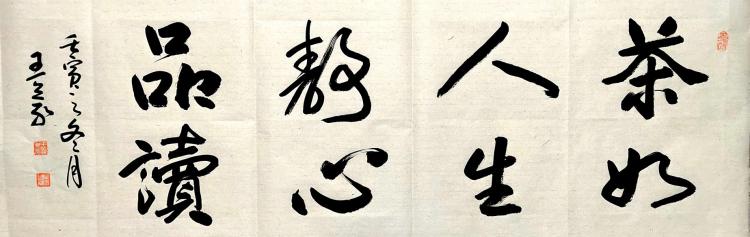 茶如
人生
靜心
品讀
壬寅之冬月
王